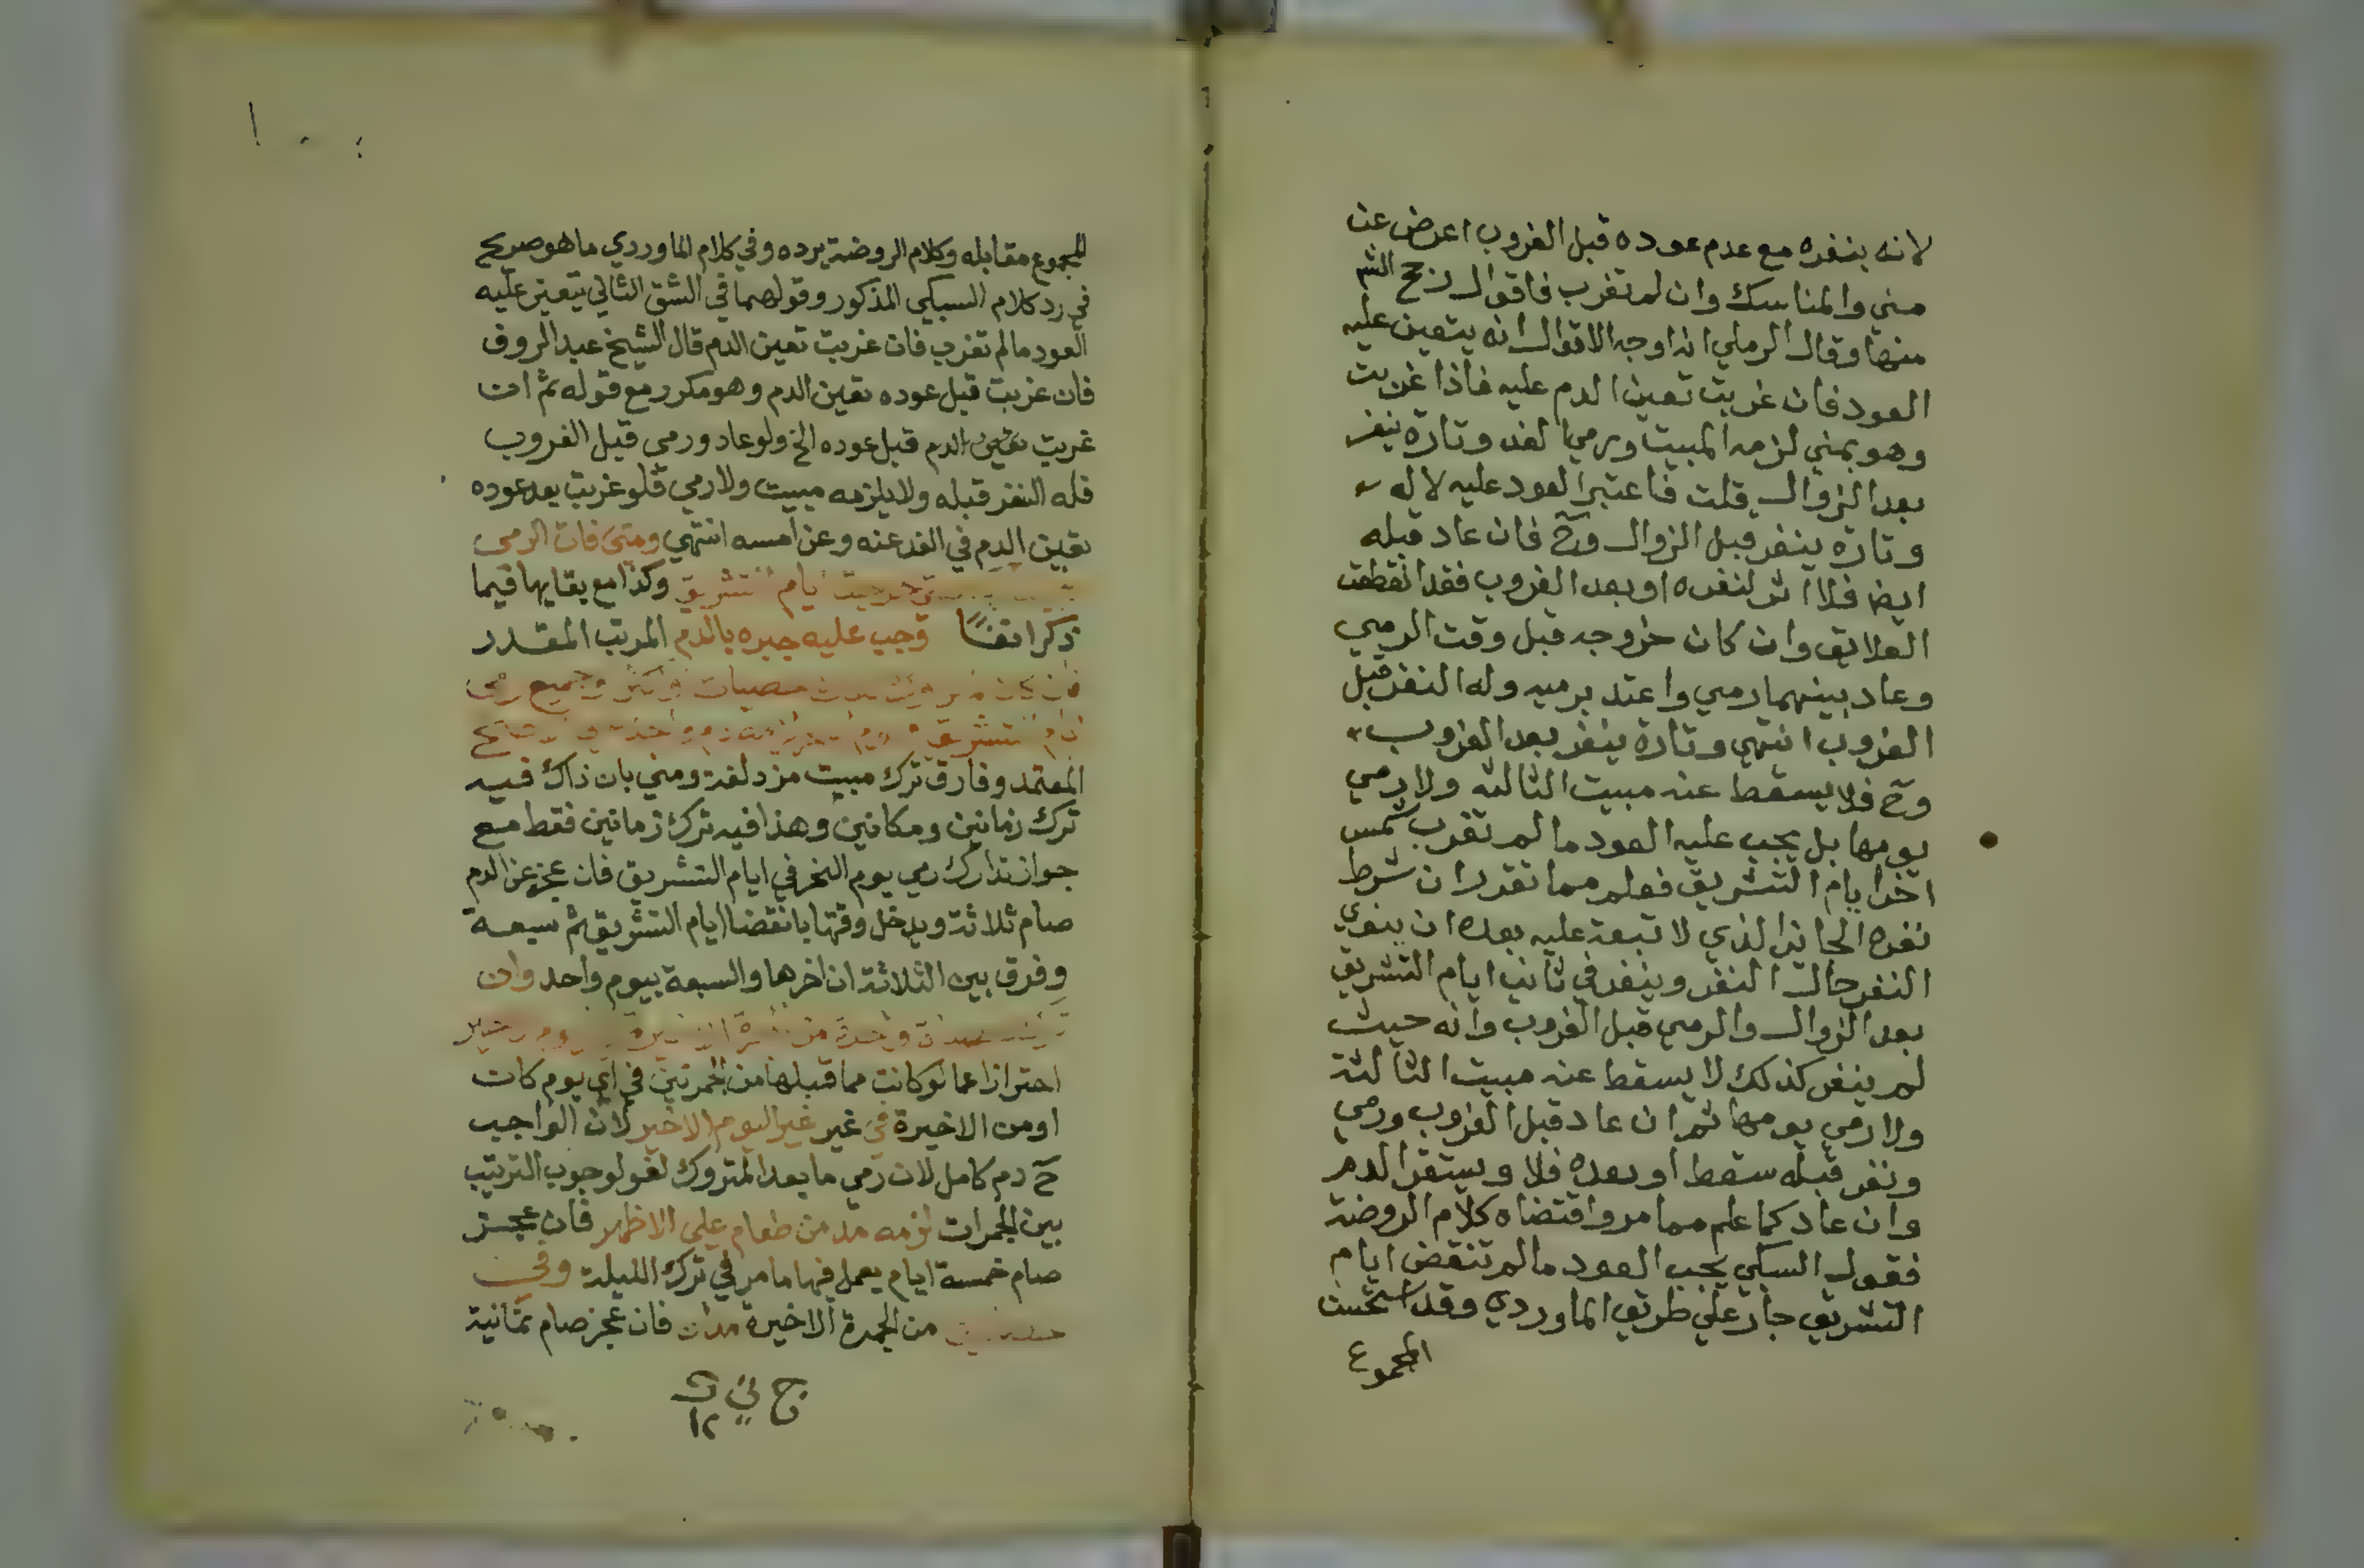 لانه بنفره مع عدم عوده قبل الغروب اعرض عن
مني والمناسك وان لم تغرب فاقوال رجح الشم
منها وقال الرملي انه اوجه الاقوال انه يتعين عليه
العود فان غربت تعين الدم عليه فاذا غربت
وهو بمني لزمه المبيت ورمي الغد وتارة ينفر
بعد الزوال قلت فاعتبر العود عليه لا له
وتارة ينفر قبل الزوال وح فان عاد قبله
ايضا فلا اثر لنفره او بعد الغروب فقد انقطعت
العلايق وان كان خروجه قبل وقت الرمي
وعاد بينهما رمي واعتد برميه وله النفر قبل
الغروب انتهي وتارة ينفر بعد الغروب
وح فلا يسقط عنه مبيت الثالثه ولا رمي
يومها بل يجب عليه العود ما لم تغرب شمس
اخر ايام التشريق فعلم مما تقرر ان شرط
نفره الجائز الذي لا تبعة عليه بعده ان ينوي
النفر حال النفر وينفر في ثاني ايام التشريق
بعد الزوال والرمي قبل الغروب وانه حيث
لم ينفر كذلك لا يسقط عنه مبيت الثالثة
ولا رمي يومها ثم ان عاد قبل الغروب ورمي
ونفر قبله سقط او بعده فلا ويستقر الدم
وان عاد كما علم مما مر واقتضاه كلام الروضة
فقول السبكي يجب العود ما لم تنقض ايام
التشريق جار علي طريق الماوردي وقد استحسن
المجموع
المجموع مقابله وكلام الروضة يرده وفي كلام الماوردي ما هو صريح
في رد كلام السبكي المذكور وقولهما في الشق الثاني يتعين عليه
العود ما لم تغرب فان غربت تعين الدم قال الشيخ عبد الروف
فان غربت قبل عوده تعين الدم وهو مكرر مع قوله ثم ان
غربت تعين الدم قبل عوده الخ ولو عاد ورمي قبل الغروب
فله النفر قبله ولا يلزمه مبيت ولا رمي فلو غربت بعد عوده
تعين الدم في الغد عنه وعن امسه انتهي ومتي فات الرمي
ايام التشريق وكذا مع بقايها فيما
ذكر انفا وجب عليه جبره بالدم المرتب المقدر
حصيات وجميع رمي
المعتمد وفارق ترك مبيت مزدلفة ومني بان ذاك فيه
ترك زمانين ومكانين وهذا فيه ترك زمانين فقط مع
جواز تدارك رمي يوم النحر في ايام التشريق فان عجز عن الدم
صام ثلاثة ويدخل وقتها بانقضا ايام التشريق ثم سبعة
وفرق بين الثلاثة ان اخرها والسبعة بيوم واحد وان
احترازا عما لو كانت مما قبلها من الجمرتين في اي يوم كان
او من الاخيرة في غير غير اليوم الاخير لان الواجب
ح دم كامل لان رمي ما بعد المتروك لغو لوجوب الترتيب
بين الجمرات لزمه مد من طعام علي الاظهر فان عجز
صام خمسة ايام يعمل فيها ما مر في ترك الليلة وفي
من الجمرة الاخيرة مدان فان عجز صام ثمانية